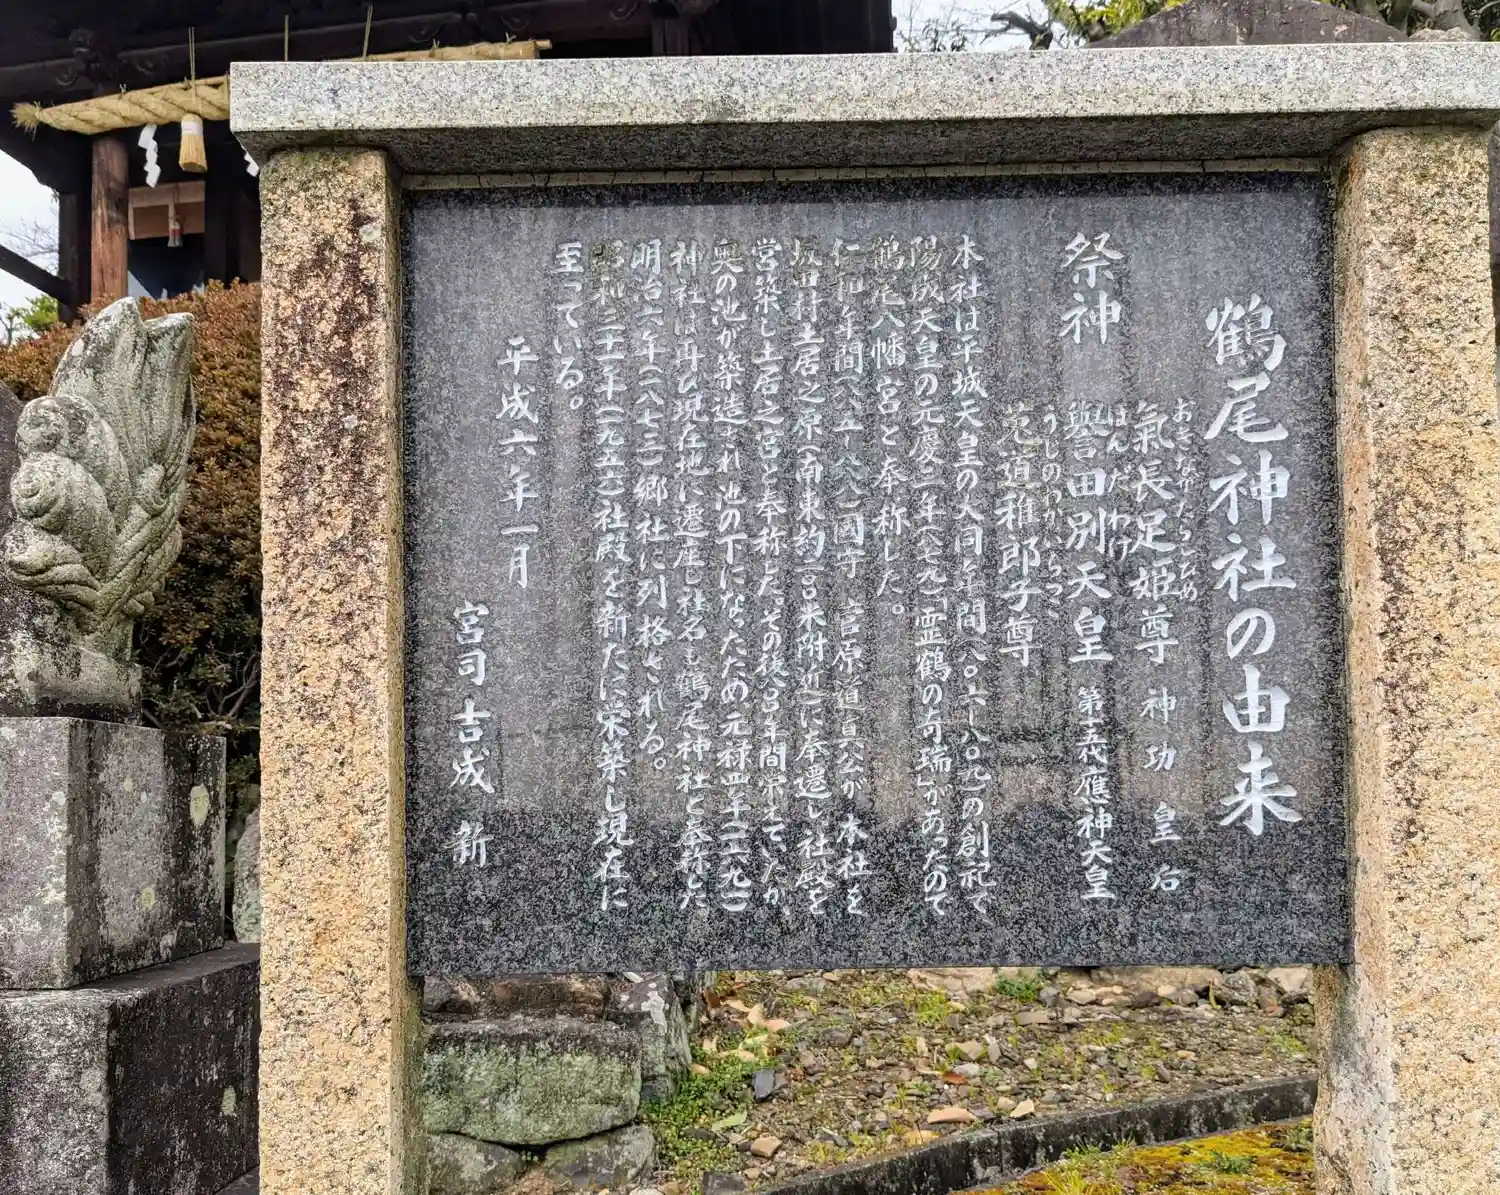 鶴尾神社の由来
祭神
おきながたらしひめ
氣長足姫尊 神功皇后
ほんだわけ
譽田別天皇 第十五代應神天皇
うじのわかいらつこ
菟道稚郎子尊
本社は平城天皇の大同年間(八〇六-八〇九)の創祀で
陽成天皇の元慶二年(八七九)「霊鶴の奇瑞」があったので
鶴尾八幡宮と奉称した。
仁和年間(八八五-八八八)國守 菅原道真公が本社を
坂田村土居之原(南東約二〇〇米附近)に奉遷し社殿を
営築し土居之宮と奉称した。その後八〇〇年間栄えていたが、
奥の池が築造され池の下になったため元禄四年(一六九一)
神社は再び現在地に遷座し社名も鶴尾神社と奉称した。
明治六年(一八七三)郷社に列格される。
昭和三十一年(一九五六)社殿を新たに栄築し現在に
至っている。
平成六年一月
宮司 吉成 新